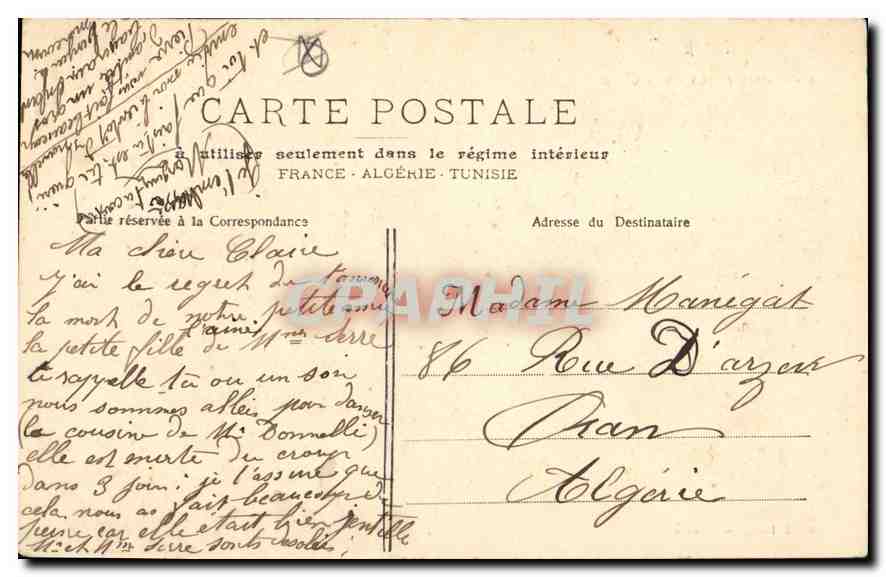 CARTE POSTALE
à utiliser seulement dans le régime intérieur
FRANCE - ALGÉRIE - TUNISIE
Partie réservée à la Correspondance
Adresse du Destinataire
Ma chère Claire
J'ai le regret de t'annoncer
la mort de notre petite amie
l'ainée
la petite fille de Mme Serre
te rappelle tu ou un soir
nous sommes allés pour danser
(la cousine de Mr Donnelli)
elle est morte du croup
dans 3 jour: je t'assure que
cela nous as fait beaucoup de
peine car elle etait bien jentille
Mr et Mme Serre sont désolés;
Madame Manégat
86 Rue D'arzew
Oran
Algérie
et toi que
Je t'embrasse
CPAPHIL